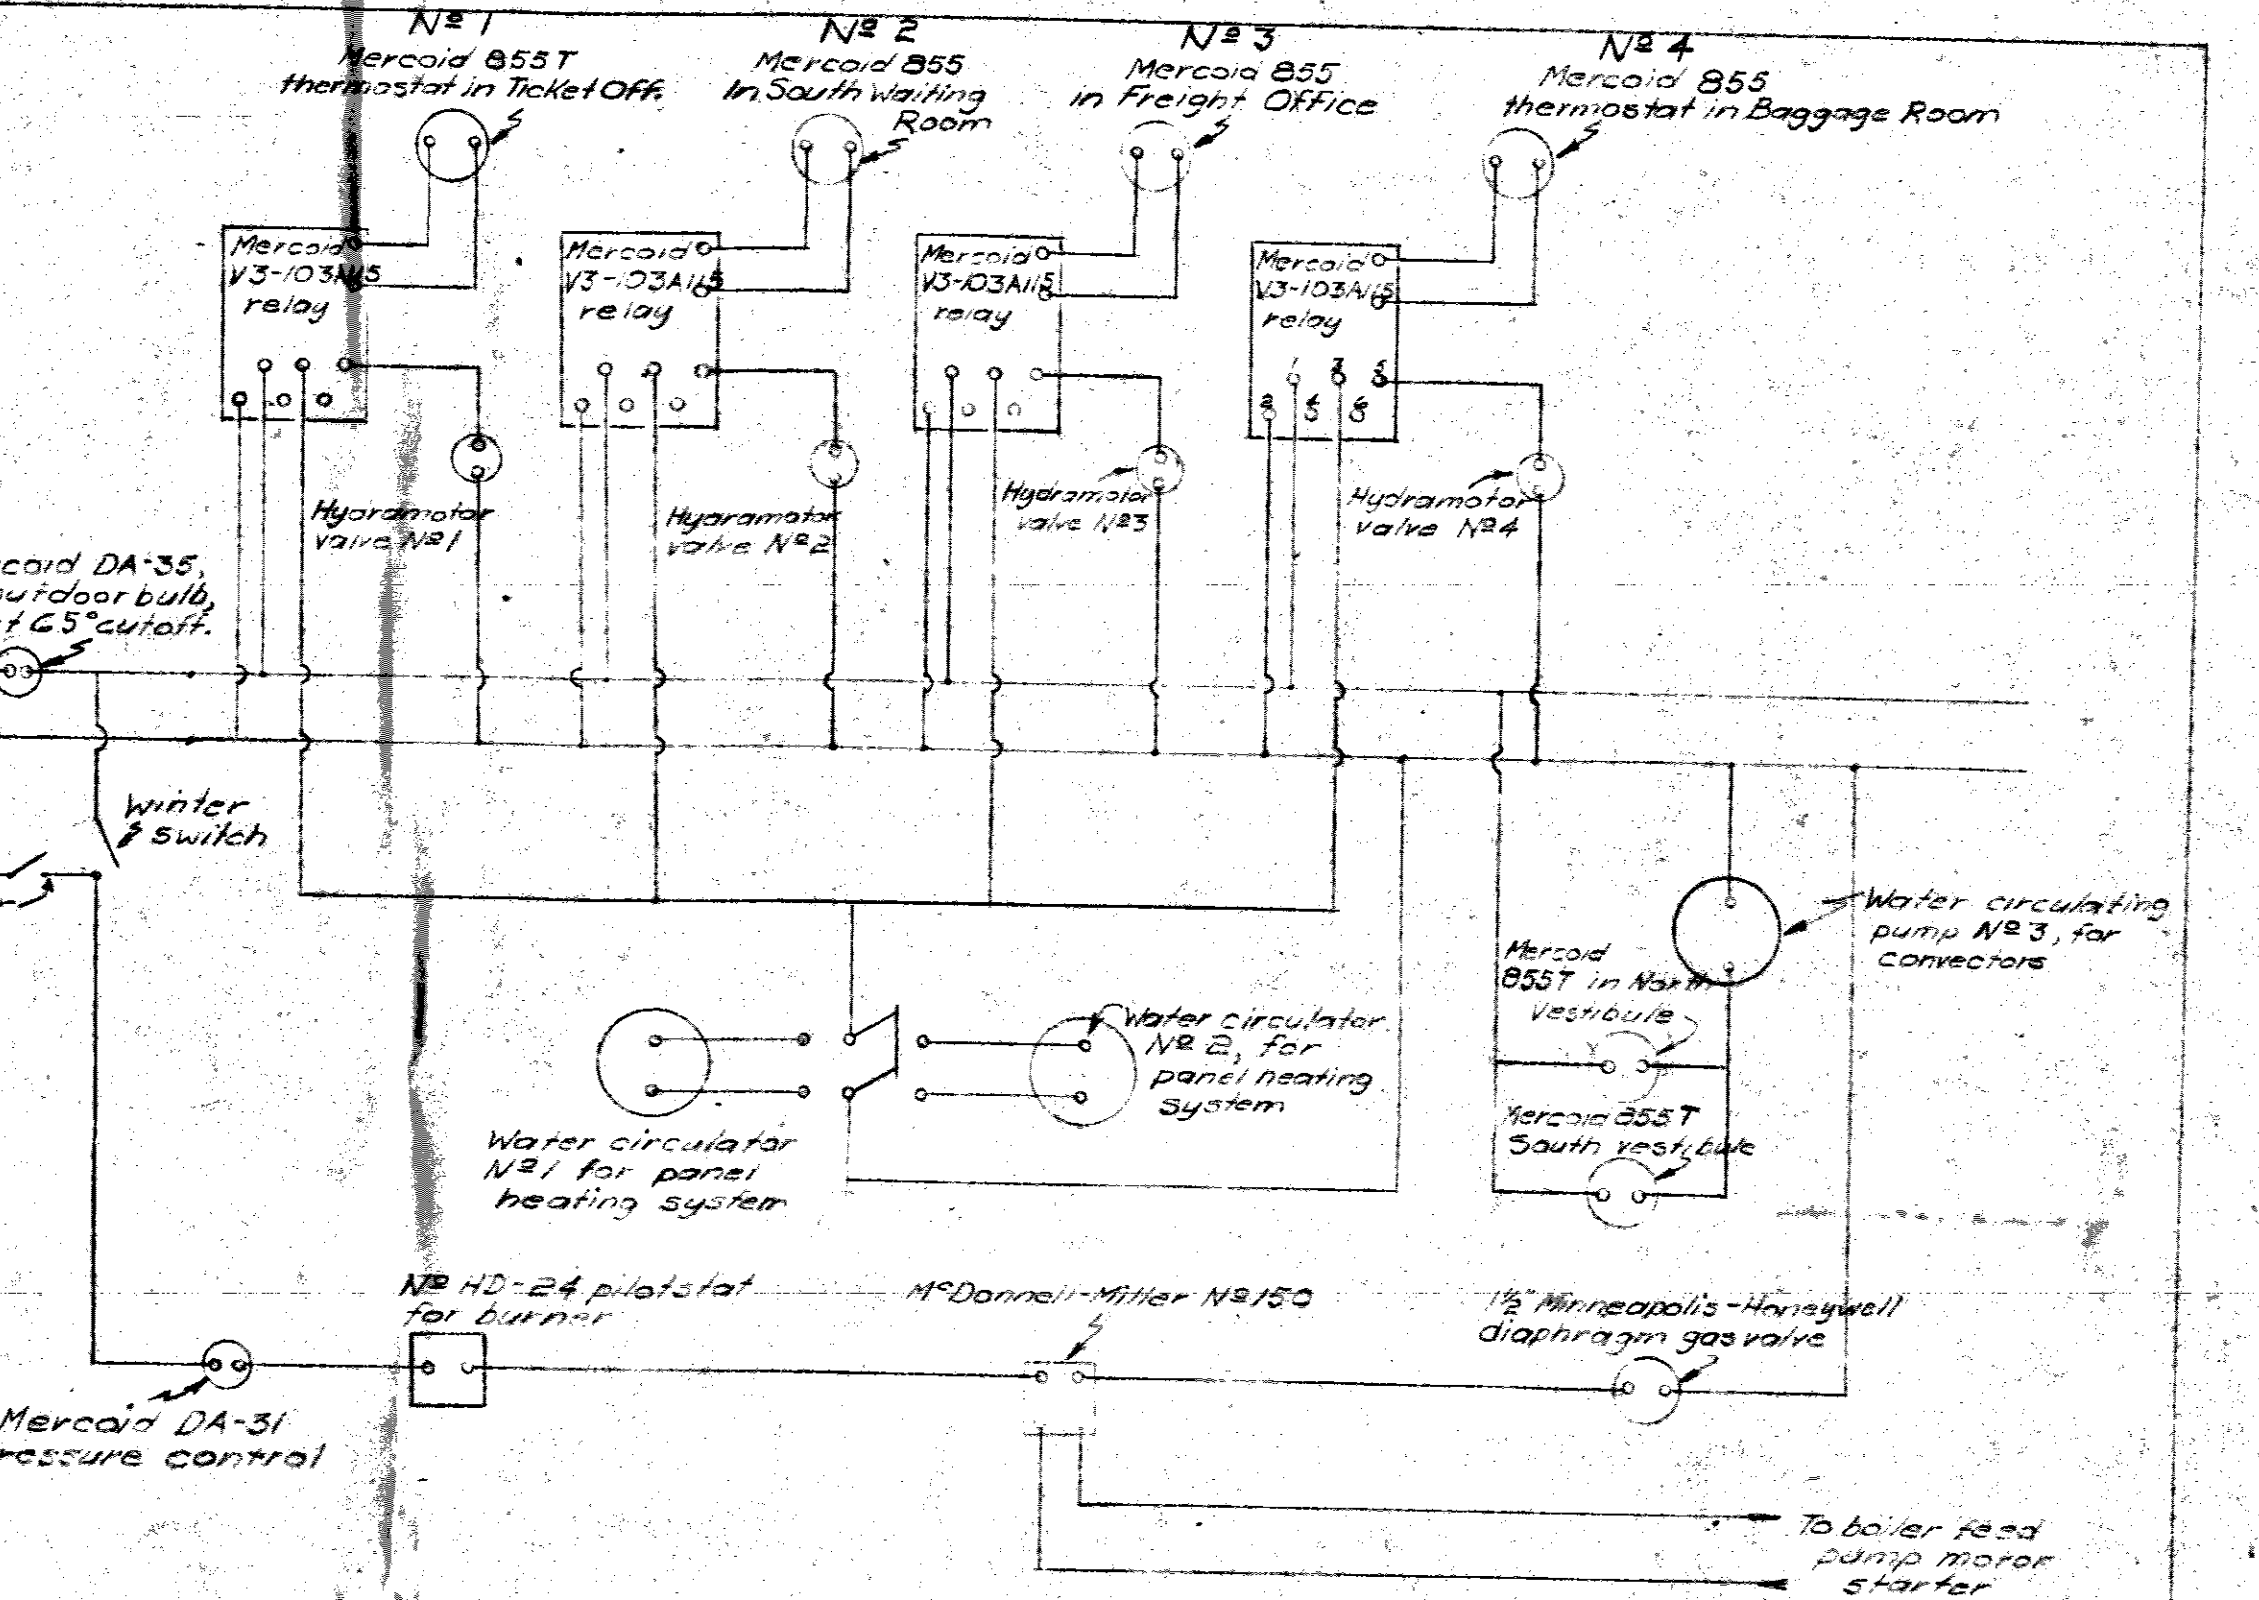 Nº 1
Mercoid 855T
thermostat in Ticket Off.
Nº 2
Mercoid 855
In South Waiting
Room
Nº 3
Mercoid 855
in Freight Office
Nº 4
Mercoid 855
thermostat in Baggage Room
Mercoid
V3-103A115
relay
Mercoid
V3-103A115
relay
Mercoid
V3-103A115
relay
Mercoid
V3-103A115
relay
1 3 5
2 4 6
Hydramotor
valve Nº1
Hydramotor
valve Nº2
Hydramotor
valve Nº3
Hydramotor
valve Nº4
coid DA-35,
outdoor bulb,
t 65° cutoff.
Winter
switch
Water circulating
pump Nº 3, for
convectors
Mercoid
855T in North
Vestibule
Mercoid 855T
South vestibule
Water circulator
Nº 2, for
panel heating
system
Water circulator
Nº1 for panel
heating system
Nº HD-24 pilotstat
for burner
McDonnell-Miller Nº150
1½" Minneapolis-Honeywell
diaphragm gas valve
Mercoid DA-31
ressure control
To boiler feed
pump motor
starter